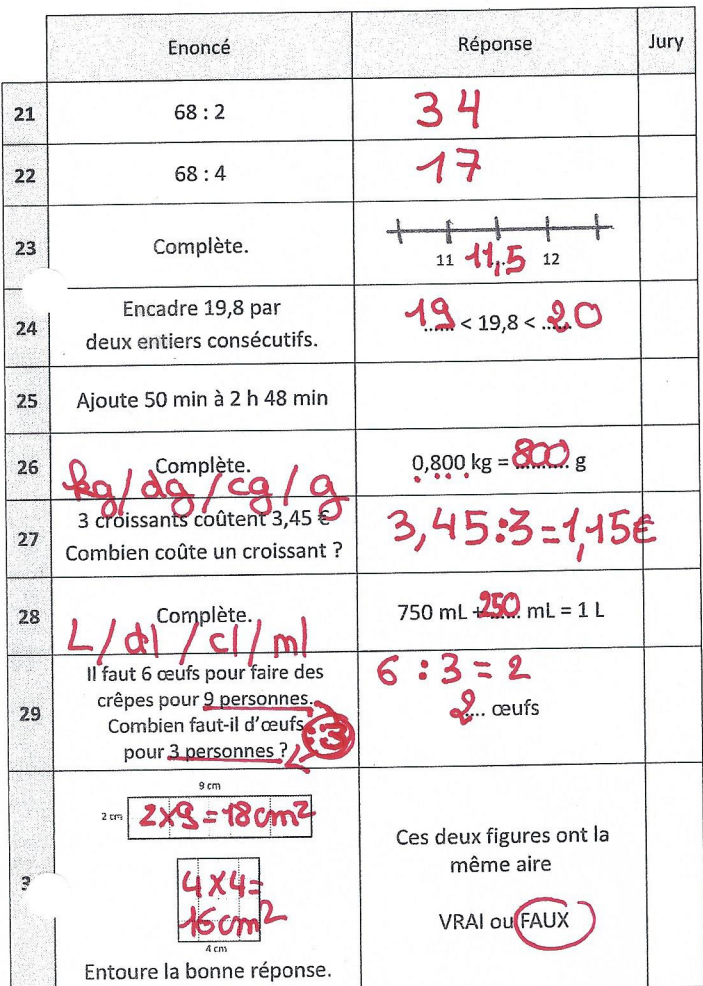 Enoncé Réponse Jury
21 68 : 2 34
22 68 : 4 17
23 Complète. 11 11,5 12
24 Encadre 19,8 par
deux entiers consécutifs. 19 < 19,8 < 20
25 Ajoute 50 min à 2 h 48 min
26 Complète. 0,800 kg = 800 g
kg/dg/cg/g
27 3 croissants coûtent 3,45 €
Combien coûte un croissant ? 3,45:3=1,15€
28 Complète. 750 mL + 250 mL = 1 L
L/dl/cl/ml
29 Il faut 6 œufs pour faire des
crêpes pour 9 personnes.
Combien faut-il d'œufs
pour 3 personnes ?
:3
6 : 3 = 2
2 œufs
3
9 cm
2 cm 2x9=18cm²
4x4=
16cm²
4 cm
Entoure la bonne réponse.
Ces deux figures ont la
même aire
VRAI ou FAUX